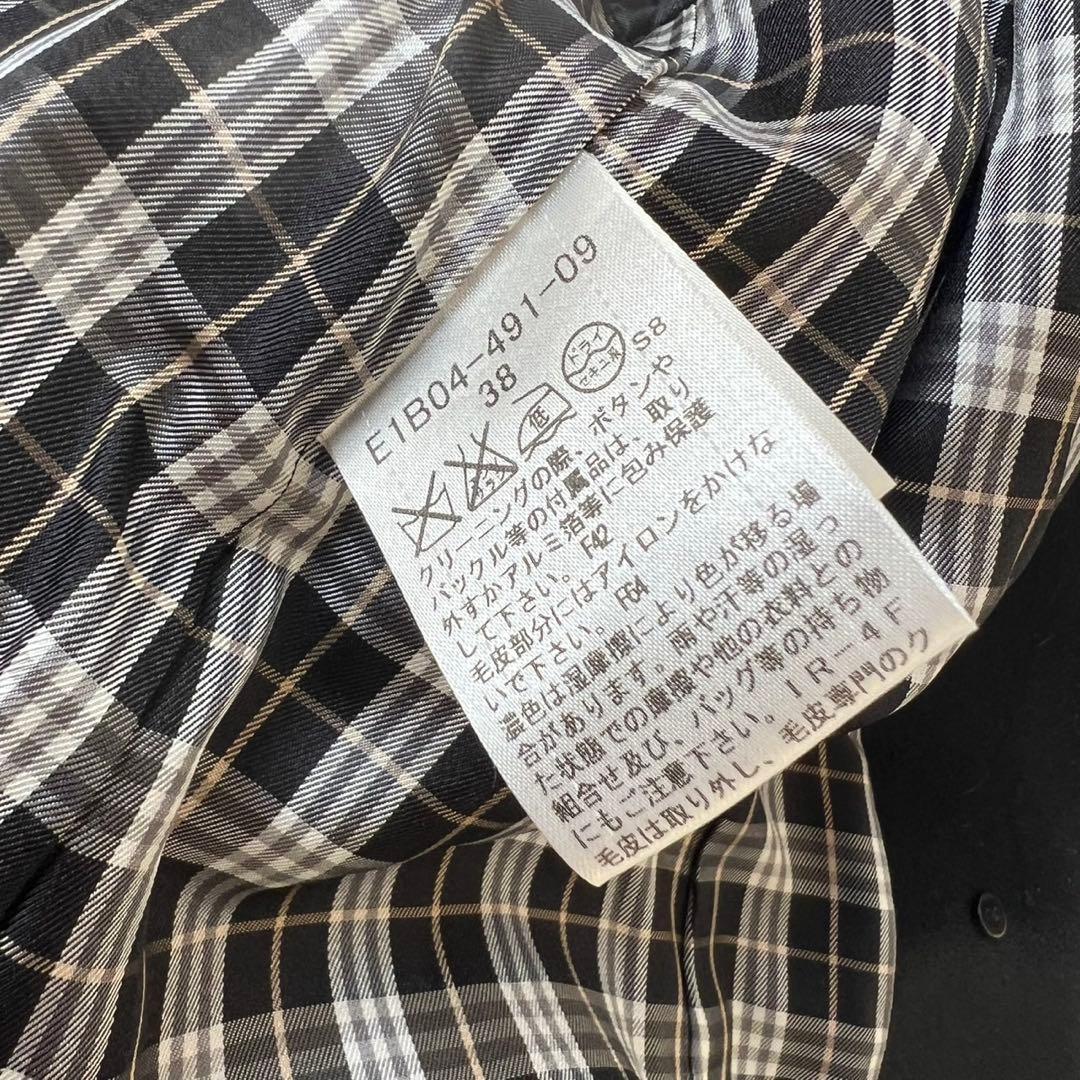 E1B04-491-09
38
エンソ
低
ドライ
セキユ系
S8
クリーニングの際、ボタンや
バックル等の付属品は、取り
外すかアルミ箔等に包み保護
して下さい。 F42
毛皮部分にはアイロンをかけな
いで下さい。 F64
濃色は湿摩擦により色が移る場
合があります。雨や汗等の湿っ
た状態での摩擦や他の衣料との
組合せ及び、バッグ等の持ち物
にもご注意下さい。 IR-4F
毛皮は取り外し、毛皮専門のク